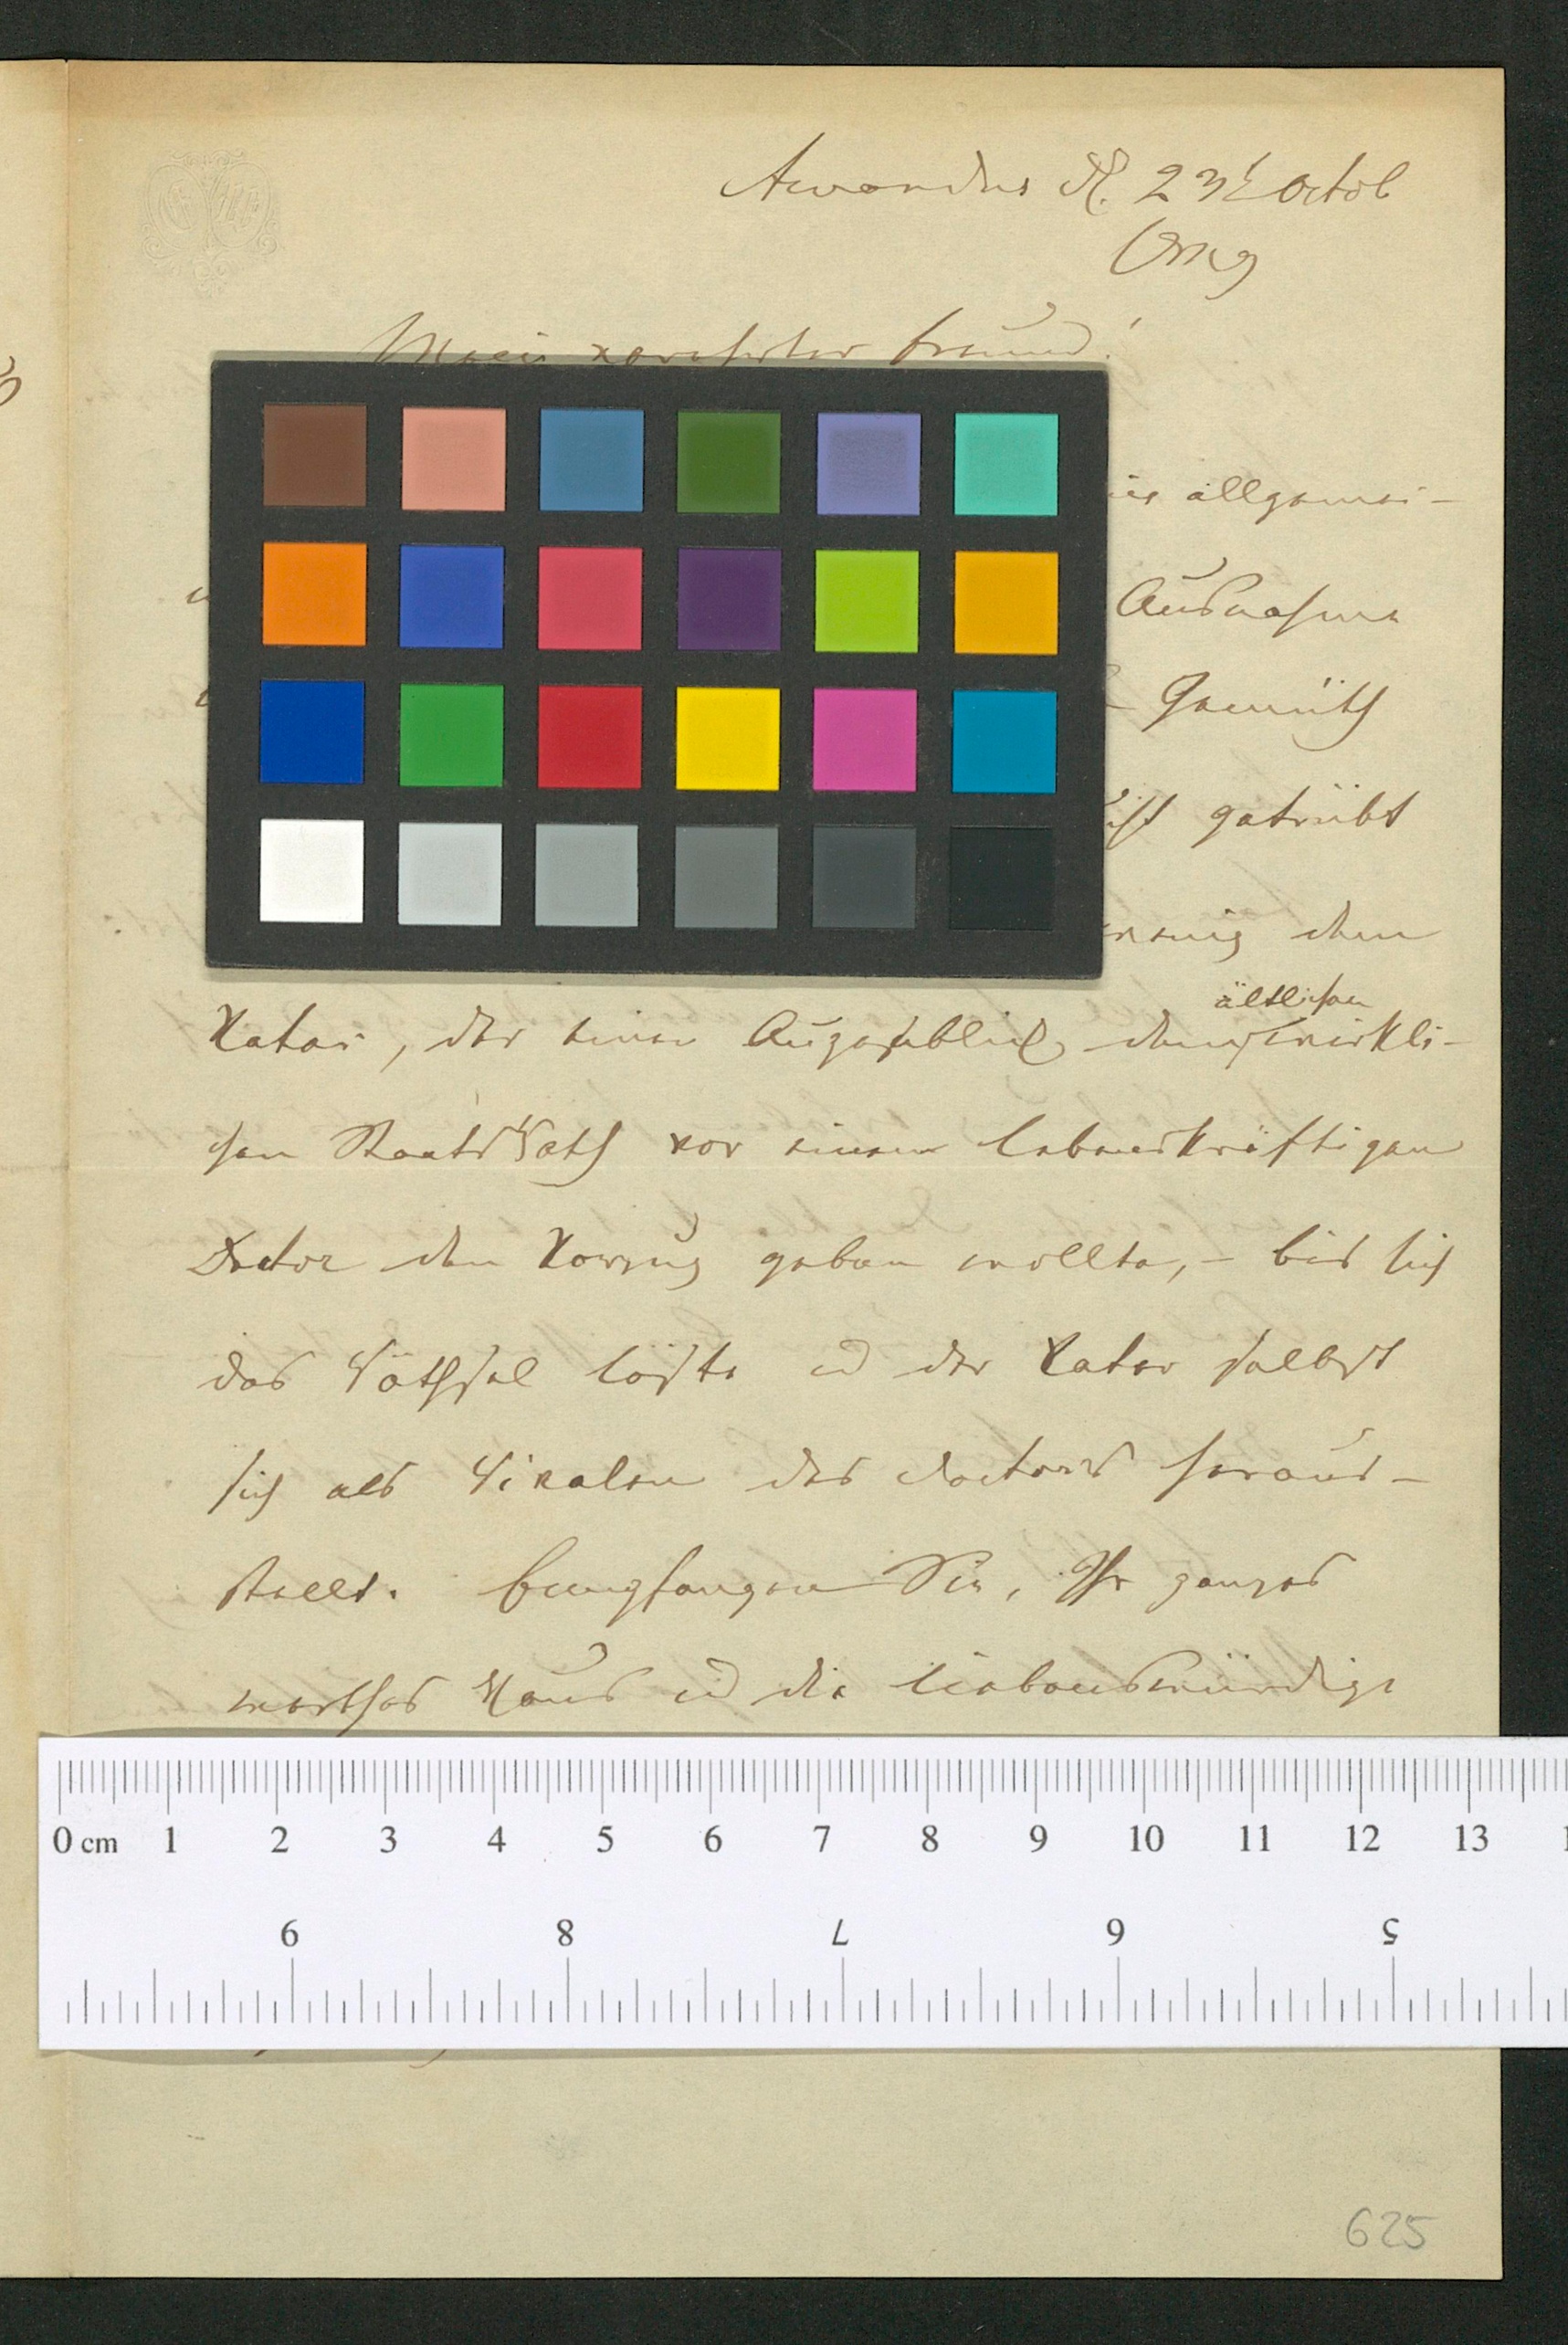 Awandus d. 23t Octob
Mein verehrter Freund!
allgemei-
Ausnahme
Gemüth
getrübt
dem
Vater, der einen Augenblick dem ältlichen wirkli-
chen Staatsrath vor einem lebenskräftigen
Doctor den Vorzug geben wollte, - bis sich
das Räthsel löste u der Vater selbst
sich als Rivalen des Doctors heraus-
stellt. Empfangen Sie, Ihr ganzes
werthes Haus u die liebenswürdige
0 cm 1 2 3 4 5 6 7 8 9 10 11 12 13
9 8 7 6 5
625